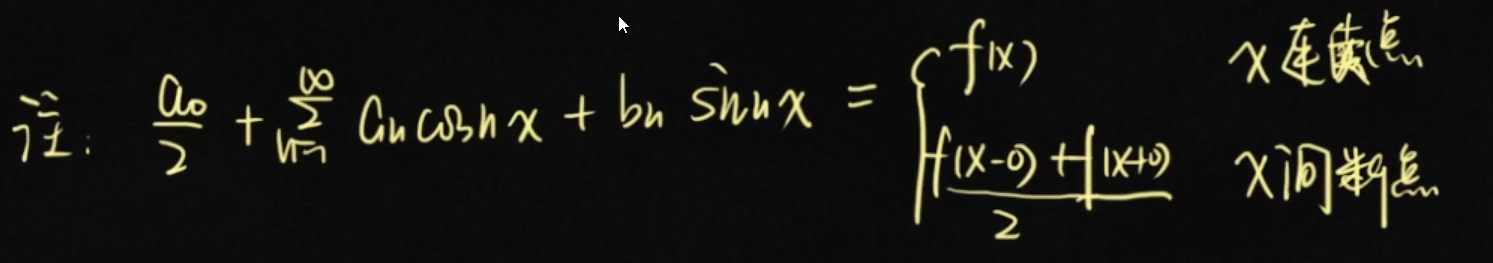 注: a₀/2 + ∑_{n=1}^{∞} aₙ cos nx + bₙ sin nx = { f(x) x连续点
f(x-0)+f(x+0)/2 x间断点